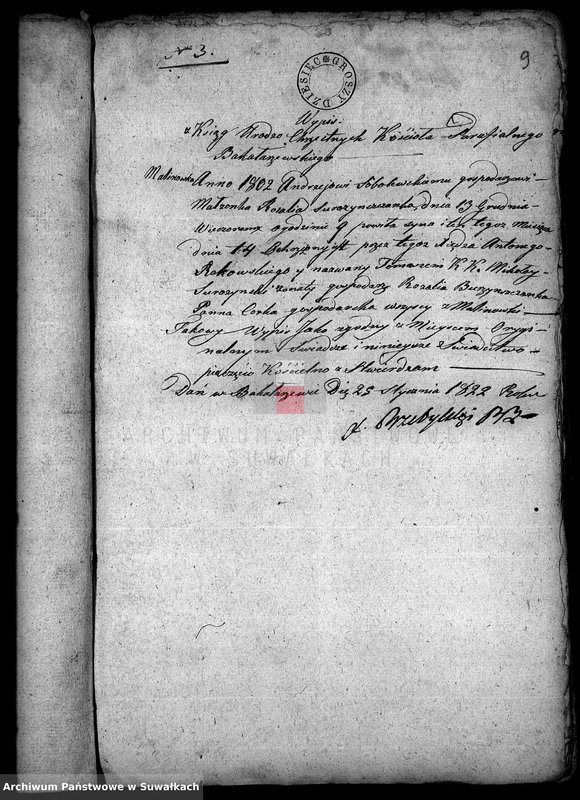 No 3.
9
DZIESIĘĆ GROSZY
Wypis
z Księg Urodzo Chrzestnych Kościoła Parafialnego
Bakałarzewskiego
Malinowka Anno 1802 Andrzejowi Sobolewskiemu gospodarzowi
Małzonka Rozalia Surozynszczanka, dnia 13 Grudnia
Wieczorem ogodzinie 9 powiła syna tegoz Miesiąca
dnia 14 Ochrzczony przez tegoz Xiędza Antoniego
Rakowskiego y nazwany Tomaszem KK. Mikołay
Surozynski zonaty gospodarz Rozalia
Panna Corka gospodarska wszyscy z Malinowki
Takowy Wypis Jako zgodny z Mieyscem Orygi
nalnym Swiadcze i ninieysze Swiadectwo
pieczęcio Kościelno Stwierdzam
Dan w Bakałarzewie Dię 25 Stycznia 1822 Roku
X.
ARCHIWUM PAŃSTWOWE
W SUWAŁKACH
Archiwum Państwowe w Suwałkach